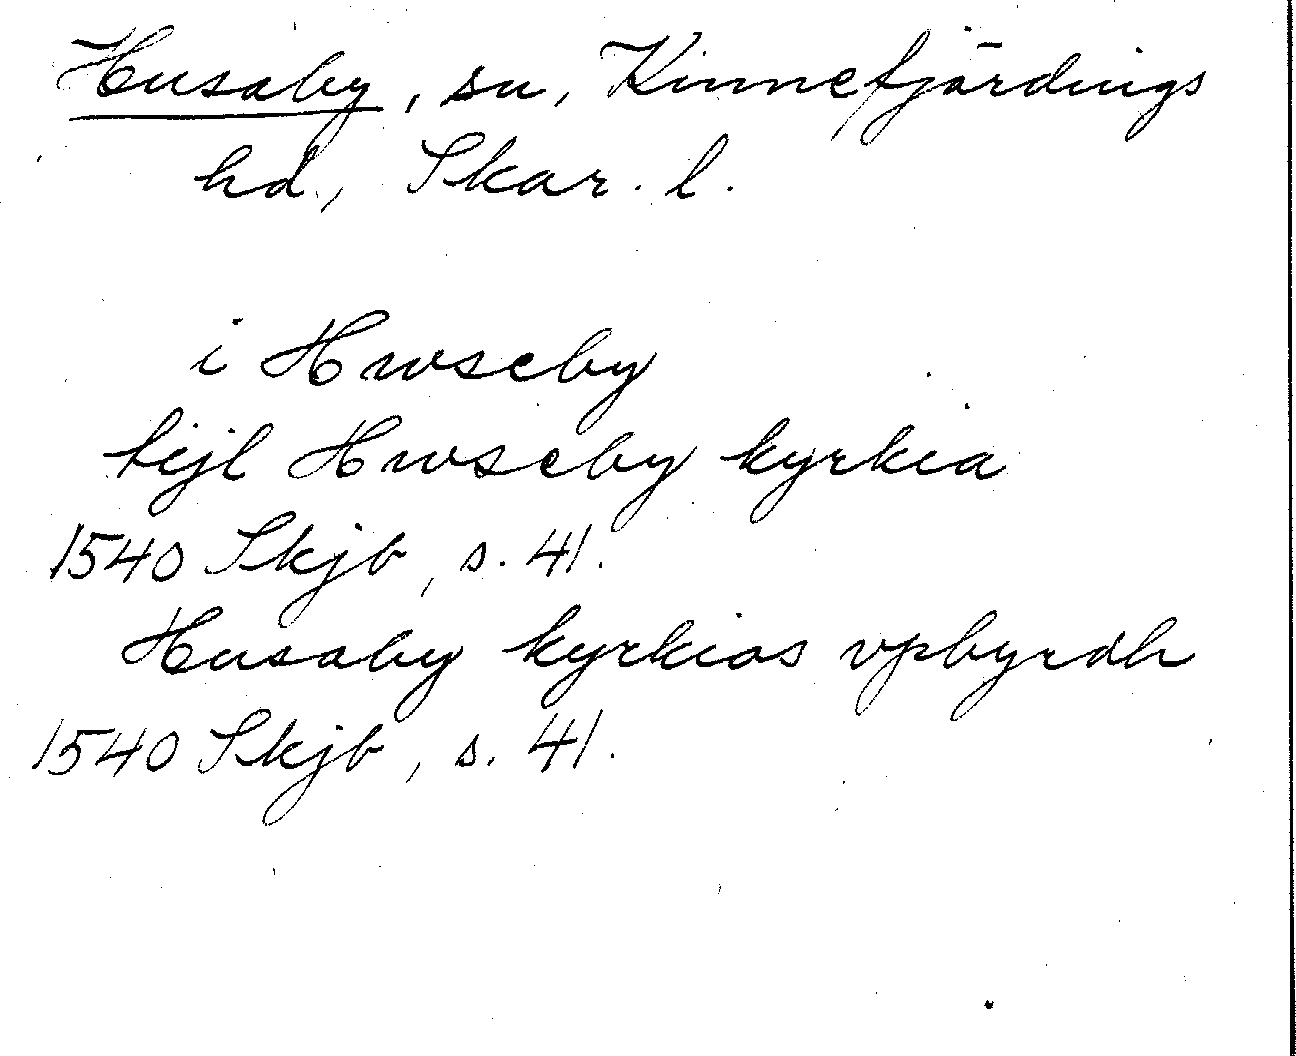 Husaby, sn, Kinnefjärdings
hd., Skar. l.
i Hwseby
tijl Hwseby kyrkia
1540 Skjb, s. 41.
Husaby kyrkios vpbyrdh
1540 Skjb, s. 41.